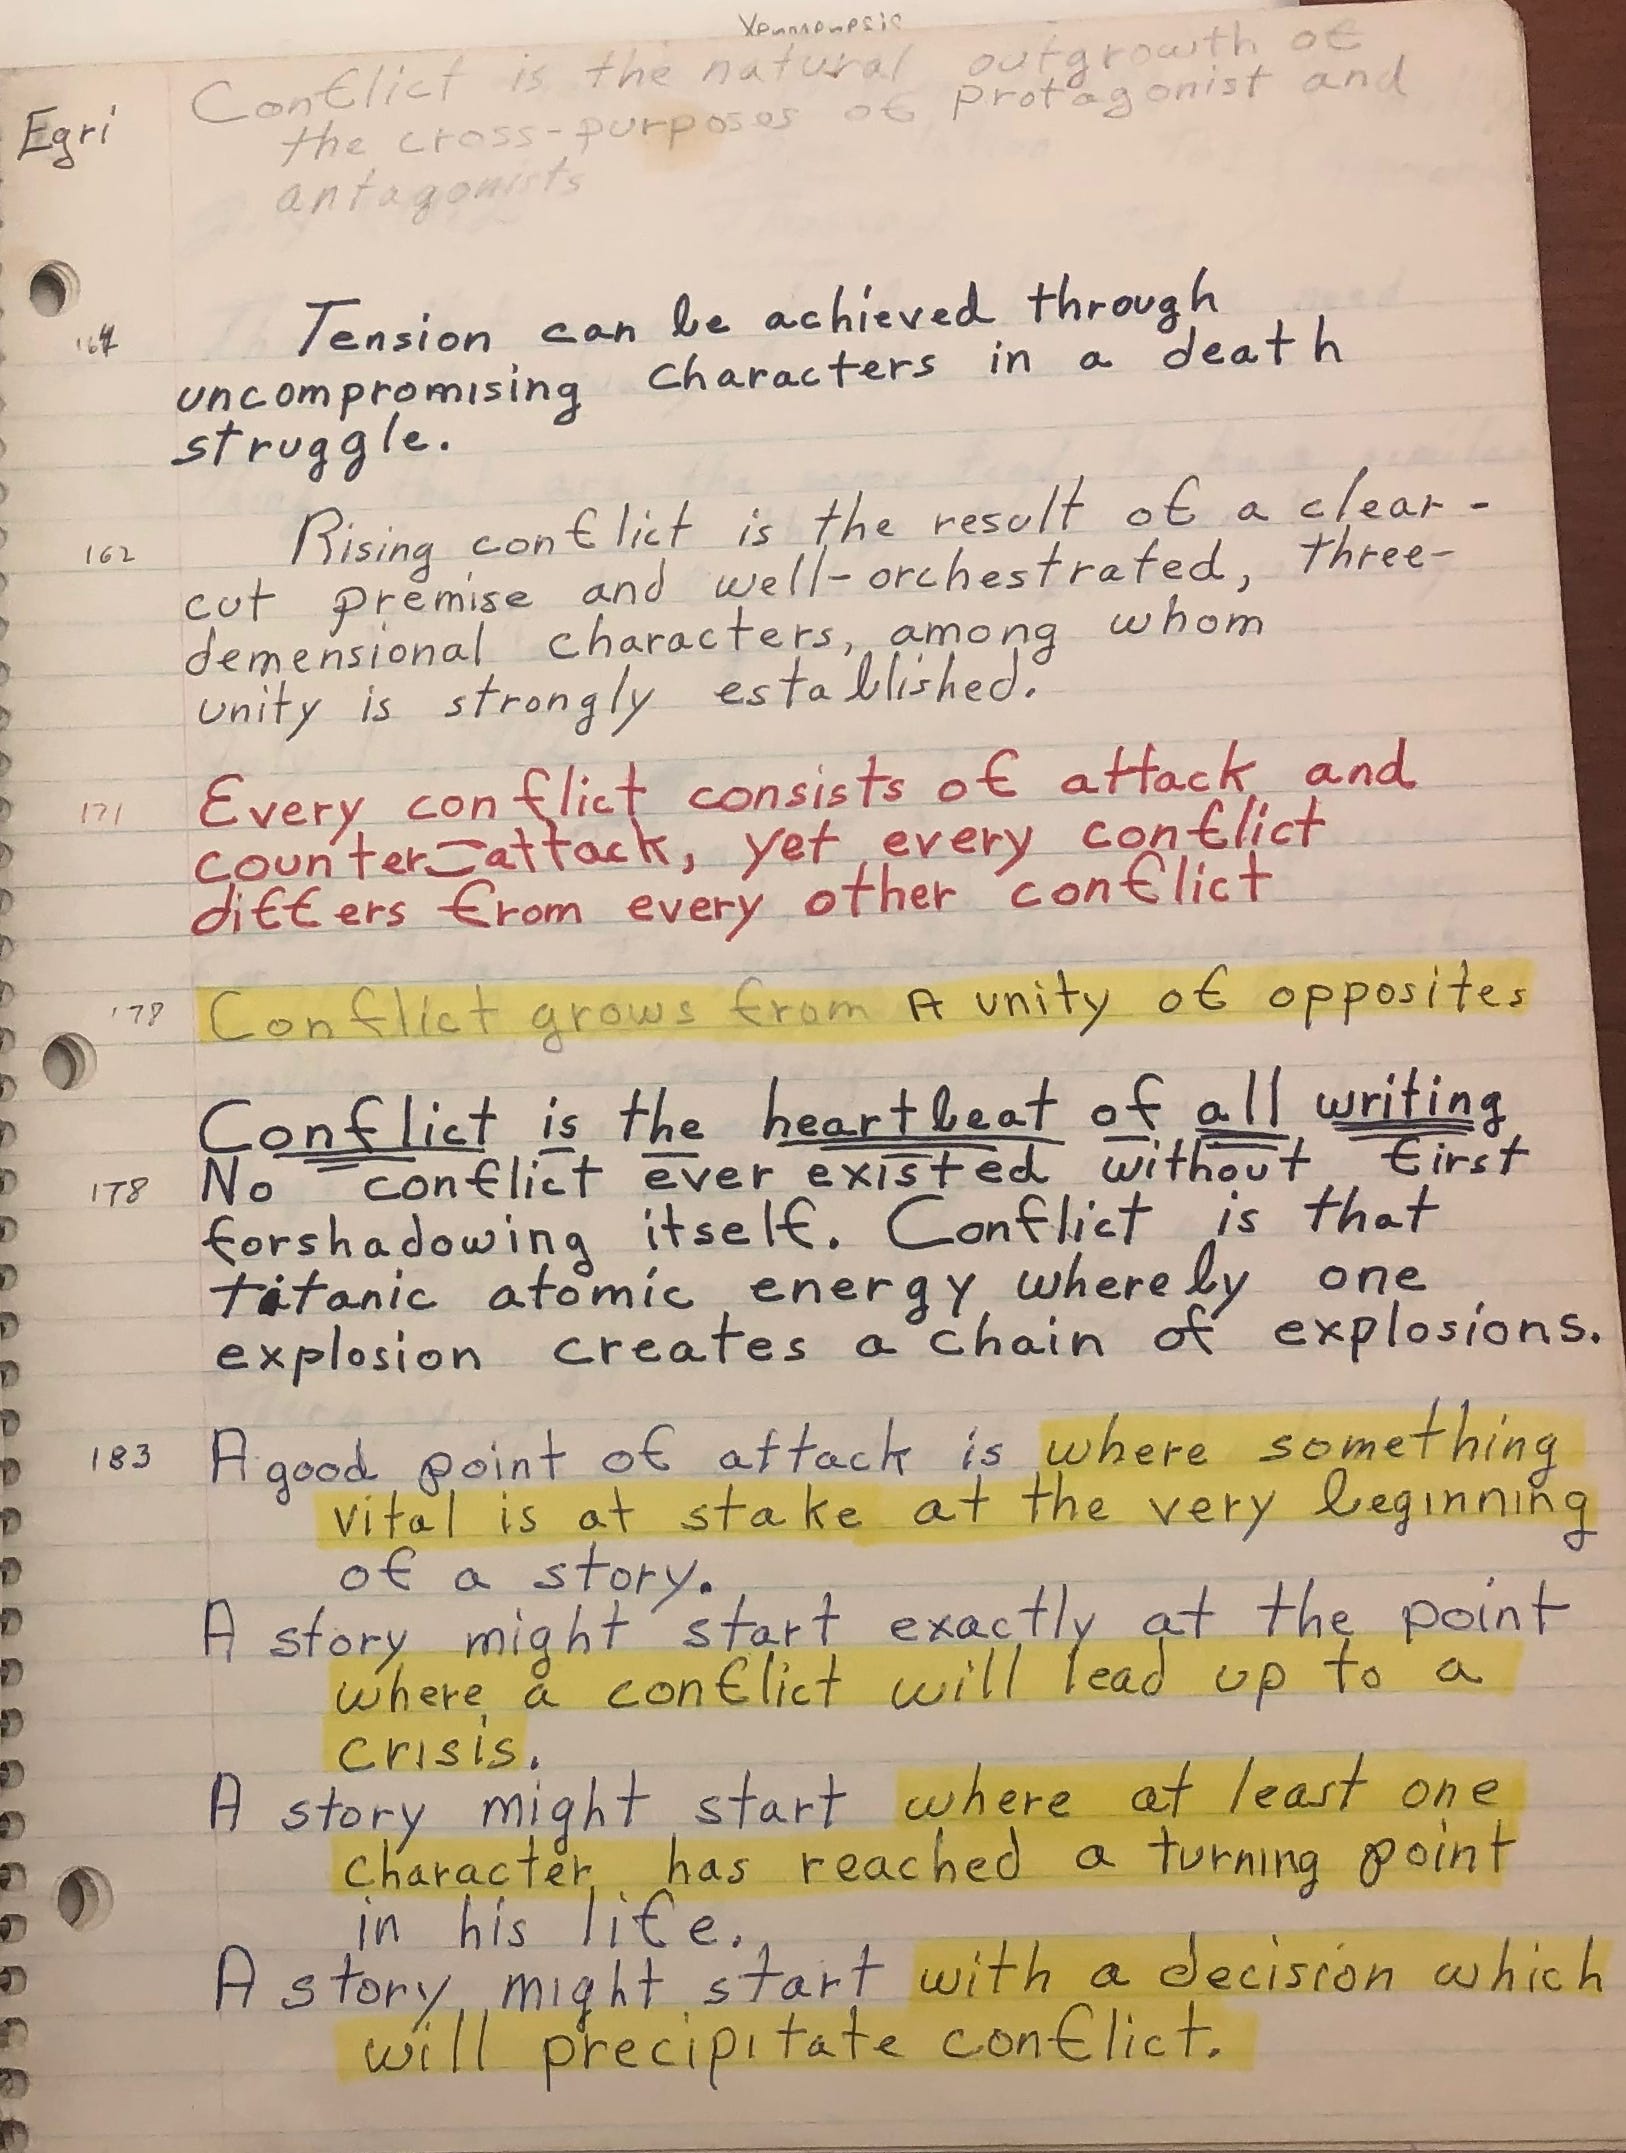 Conflict is the natural outgrowth of
the cross-purposes of protagonist and
antagonists
Egri
164
Tension can be achieved through
uncompromising characters in a death
struggle.
162
Rising conflict is the result of a clear-
cut premise and well-orchestrated, three-
demensional characters, among whom
unity is strongly established.
171
Every conflict consists of attack and
counter-attack, yet every conflict
differs from every other conflict
178
Conflict grows from A unity of opposites
Conflict is the heartbeat of all writing
178
No conflict ever existed without first
forshadowing itself. Conflict is that
titanic atomic energy whereby one
explosion creates a chain of explosions.
183
A good point of attack is where something
vital is at stake at the very beginning
of a story.
A story might start exactly at the point
where a conflict will lead up to a
crisis.
A story might start where at least one
character has reached a turning point
in his life.
A story might start with a decision which
will precipitate conflict.